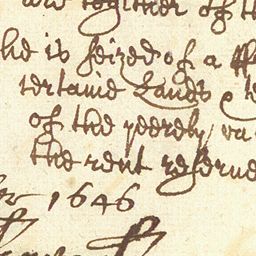 and together of th
he is seized of a
certaine Lands &
of the yeerely va
the rent reserve
1646